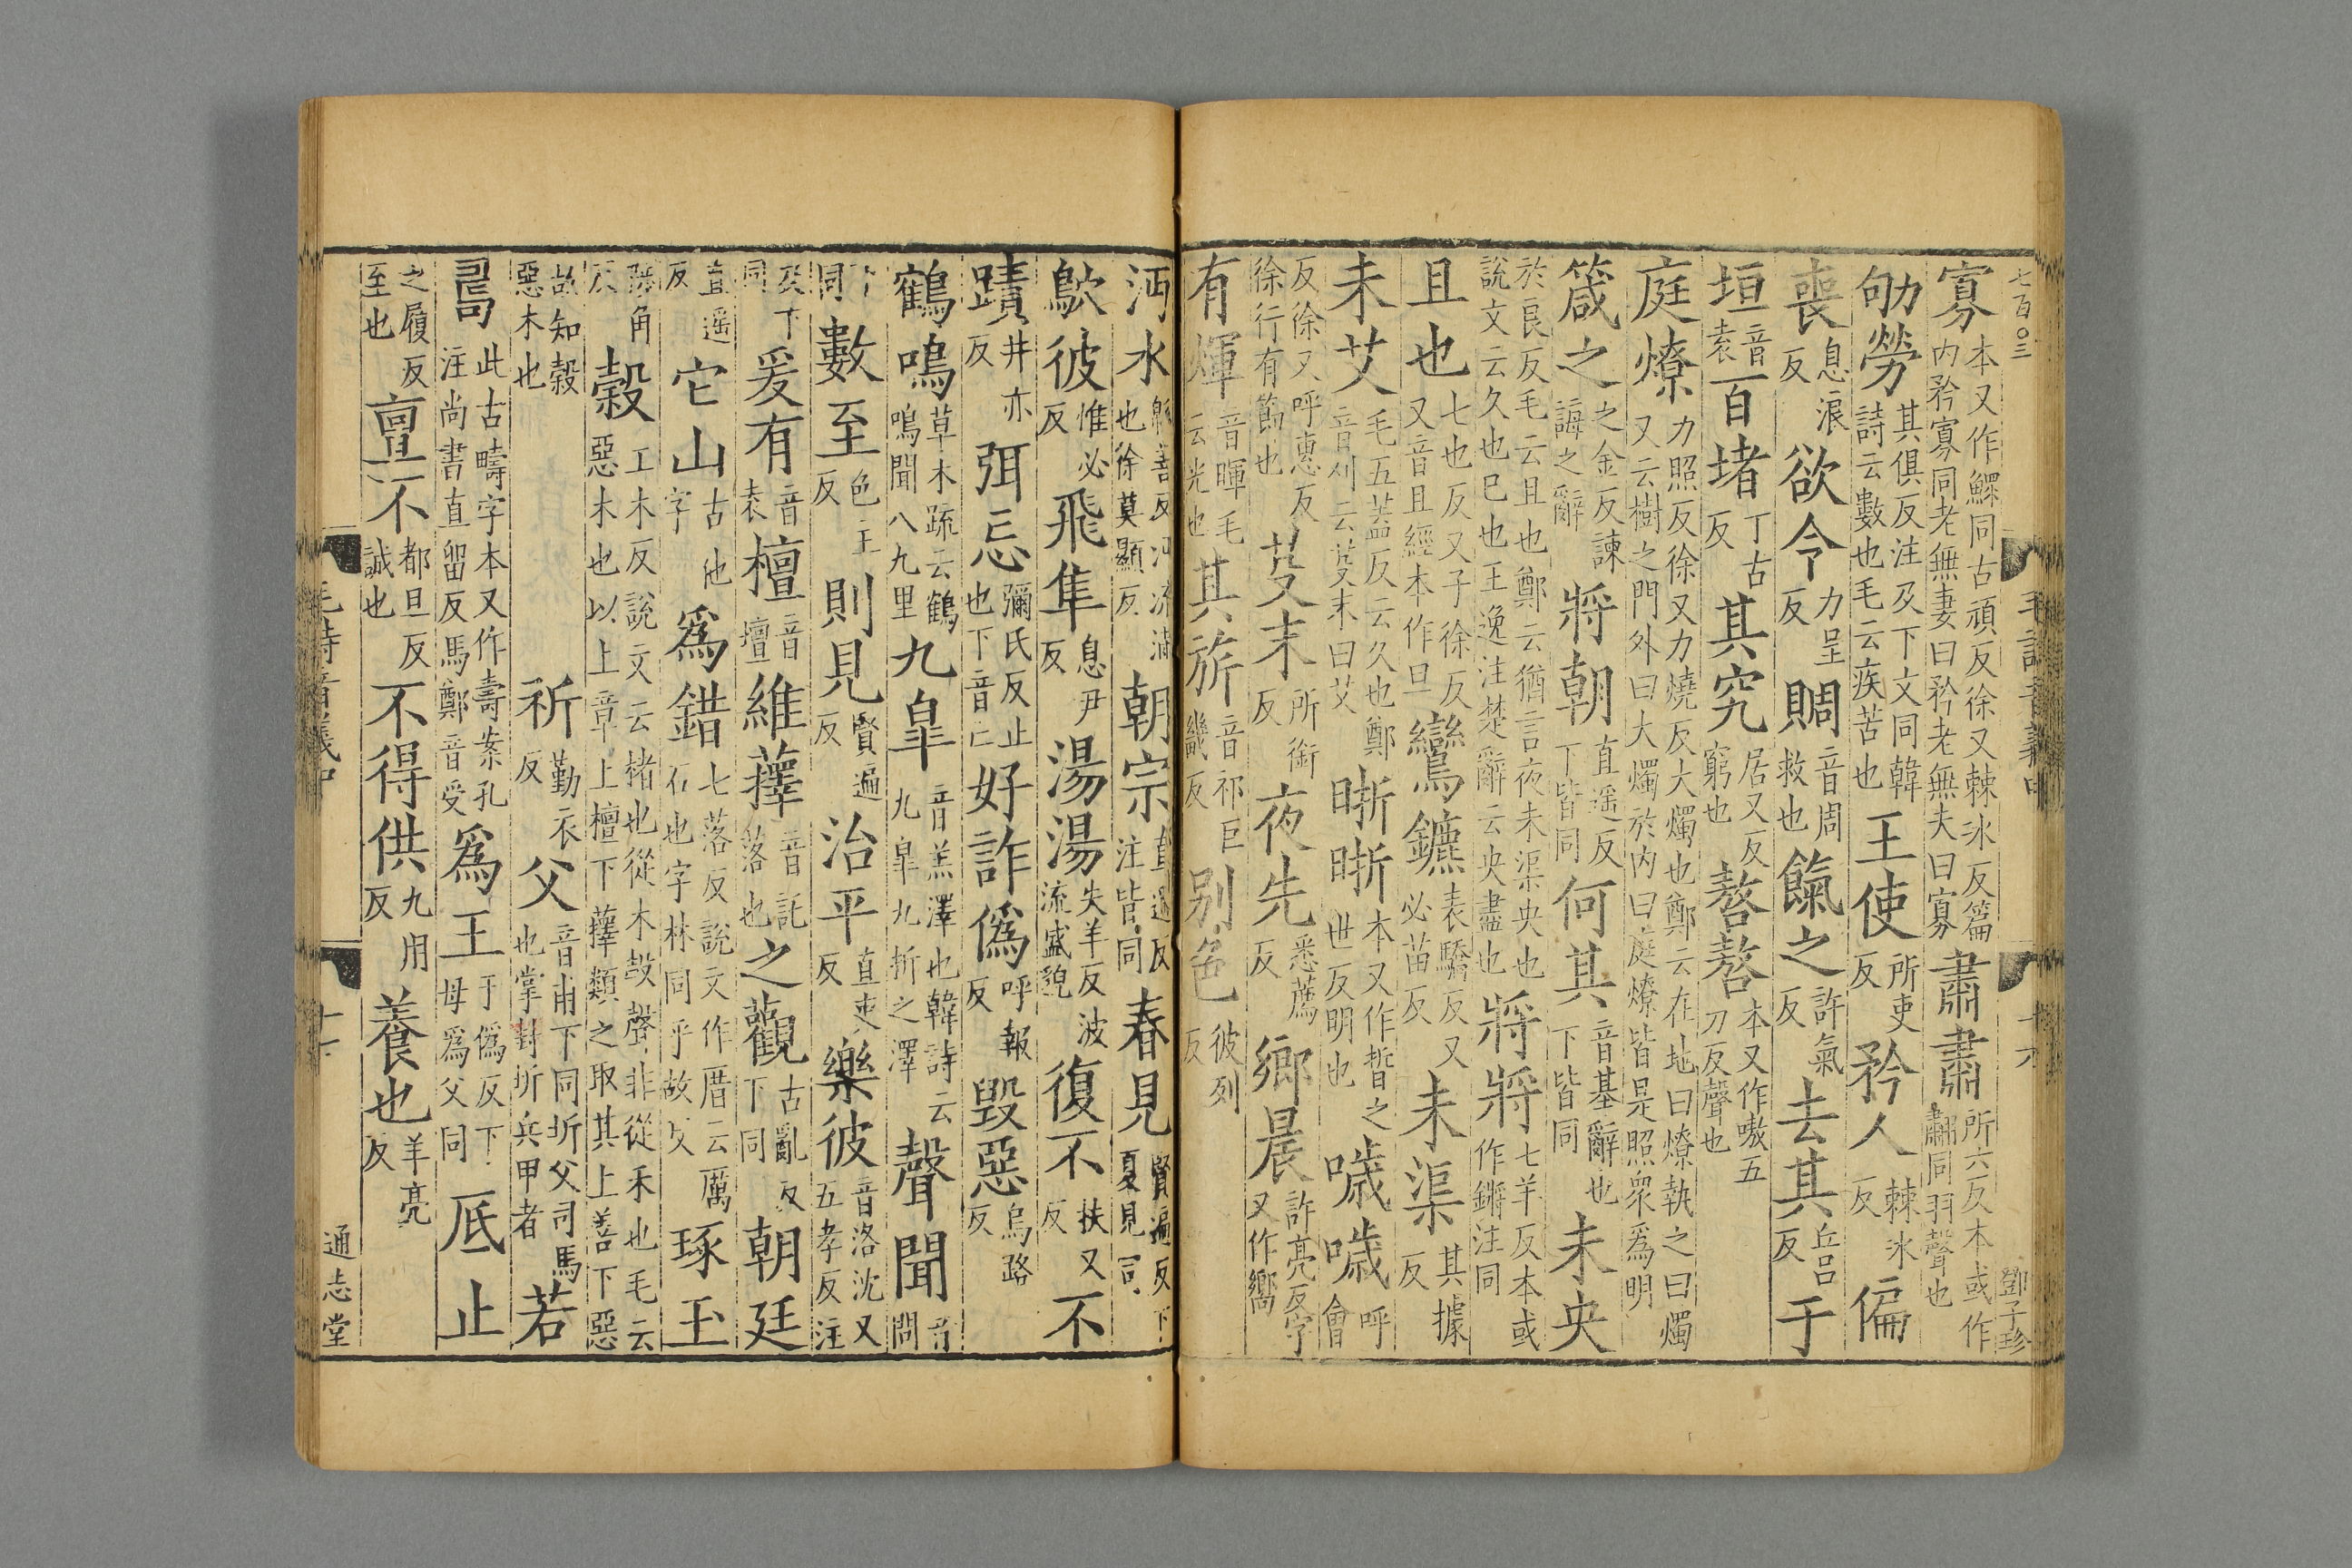 七百〇三 毛詩音義中 十六 鄧子珍
寡本又作鰥同古頑反徐又棘冰反篇内矜寡同老無妻曰矜老無夫曰寡肅肅所六反本或作䎘同羽聲也
劬勞其俱反注及下文同韓詩云數也毛云疾苦也王使所吏反矜人棘冰反偏
喪息浪反欲令力呈反賙音周救也餼之許氣反去其丘呂反于
垣音袁百堵丁古反其究居又反窮也嗸嗸本又作嗷五刀反聲也
庭燎力照反徐又力燒反大燭也鄭云在地曰燎執之曰燭又云樹之門外曰大燭於内曰庭燎皆是照衆爲明
箴之之金反諫誨之辭將朝直遥反下皆同何其音基辭也下皆同未央
於良反毛云且也鄭云猶言夜未渠央也說文云久也巳也王逸注楚辭云央盡也將將七羊反本或作鏘注同
且也七也反又子徐反又音且經本作旦鸞鑣表驕反又必苗反未渠其據反
未艾毛五蓋反云久也鄭音刈云芟末曰艾晣晣本又作晢之世反明也噦噦呼會
反徐又呼惠反徐行有節也芟末所銜反夜先悉薦反鄉晨許亮反字又作嚮
有煇音暉毛云光也其旂音祁巨畿反别色彼列反
沔水緜善反沔流滿也徐莫顯反朝宗直遥反注皆同春見賢遍反下夏見同
鴥彼惟必反飛隼息尹反湯湯失羊反波流盛貌復不扶又反不
蹟井亦反弭忘彌氏反止也下音亡好詐僞呼報反毀惡烏路反
鶴鳴草木疏云鶴鳴聞八九里九臯音羔澤也韓詩云九臯九折之澤聲聞音問
同數至色主反則見賢遍反治平直吏反樂彼音洛沈又五孝反注
及下同爰有音袁檀音壇維蘀音託落也之觀古亂反下同朝廷
直遥反它山古他字爲錯七落反說文作厝云厲石也字林同乎故反琢玉
陟角反榖工木反說文云楮也從木㱿聲非從禾也毛云惡木也以上章上檀下蘀類之取其上善下惡
故知榖惡木也祈勤衣反父音甫下同圻父司馬也掌封圻兵甲者若
𠷎此古疇字本又作壽案孔注尚書直留反馬鄭音受爲王于僞反下母爲父同厎止
之履反至也亶不都旦反誠也不得供九用反養也羊亮反
毛詩音義中 通志堂